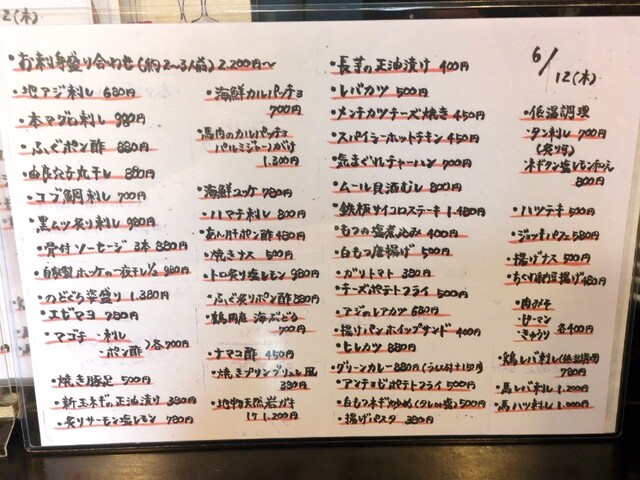 2(木)
6/12(木)
・お刺身盛り合わせ(約2〜3人前) 2.200円〜
・地アジ刺し 680円
・本マグロ刺し 980円
・ふぐポン酢 880円
・由良穴子丸干し 880円
・コブ鯛刺し 700円
・黒ムツ炙り刺し 980円
・骨付ソーセージ 3本 880円
・自家製ホッケの一夜干し1/2 980円
・のどぐろ姿盛り 1.380円
・エビマヨ 780円
・マゴチ・刺し
・ポン酢 〉各700円
・焼き豚足 500円
・新玉ネギの正油漬け 380円
・炙りサーモン塩レモン 780円
・海鮮カルパッチョ
700円
・馬肉のカルパッチョ
パルミジャーノがけ
1.300円
・海鮮ユッケ 780円
・ハマチ刺し 800円
・あん肝ポン酢 480円
・焼きナス 500円
・トロ炙り塩レモン 980円
・ふぐ炙りポン酢 880円
・鶴岡産 海ぶどう
700円
・ナマコ酢 450円
・焼きプリンブリュレ風
380円
・地物天然岩ガキ
1ケ 1.200円
・長芋の正油漬け 400円
・レバカツ 500円
・メンチカツチーズ焼き 450円
・スパイシーホットチキン 450円
・気まぐれチャーハン 700円
・ムール貝酒むし 800円
・鉄板サイコロステーキ 1.480円
・もつの塩煮込み 400円
・白もつ唐揚げ 500円
・ガリトマト 380円
・チーズポテトフライ 500円
・アジのレアカツ 680円
・揚げパンホイップサンド 400円
・ヒレカツ 880円
・グリーンカレー 880円(ライス付+150円)
・アンチョビポテトフライ 500円
・白もつネギ炒め(タレor塩) 500円
・揚げパスタ 380円
・低温調理
・タン刺し 700円
(炙り可)
・ネギタン塩レモン和え
800円
・ハツテキ 500円
・ジョッキパフェ 580円
・揚げナス 500円
・ちくわ納豆揚げ 480円
・肉みそ
・ピーマン
・きゅうり 各400円
・鶏レバ刺し(低温調理)
780円
・馬レバ刺し 1.200円
・馬ハツ刺し 1.000円